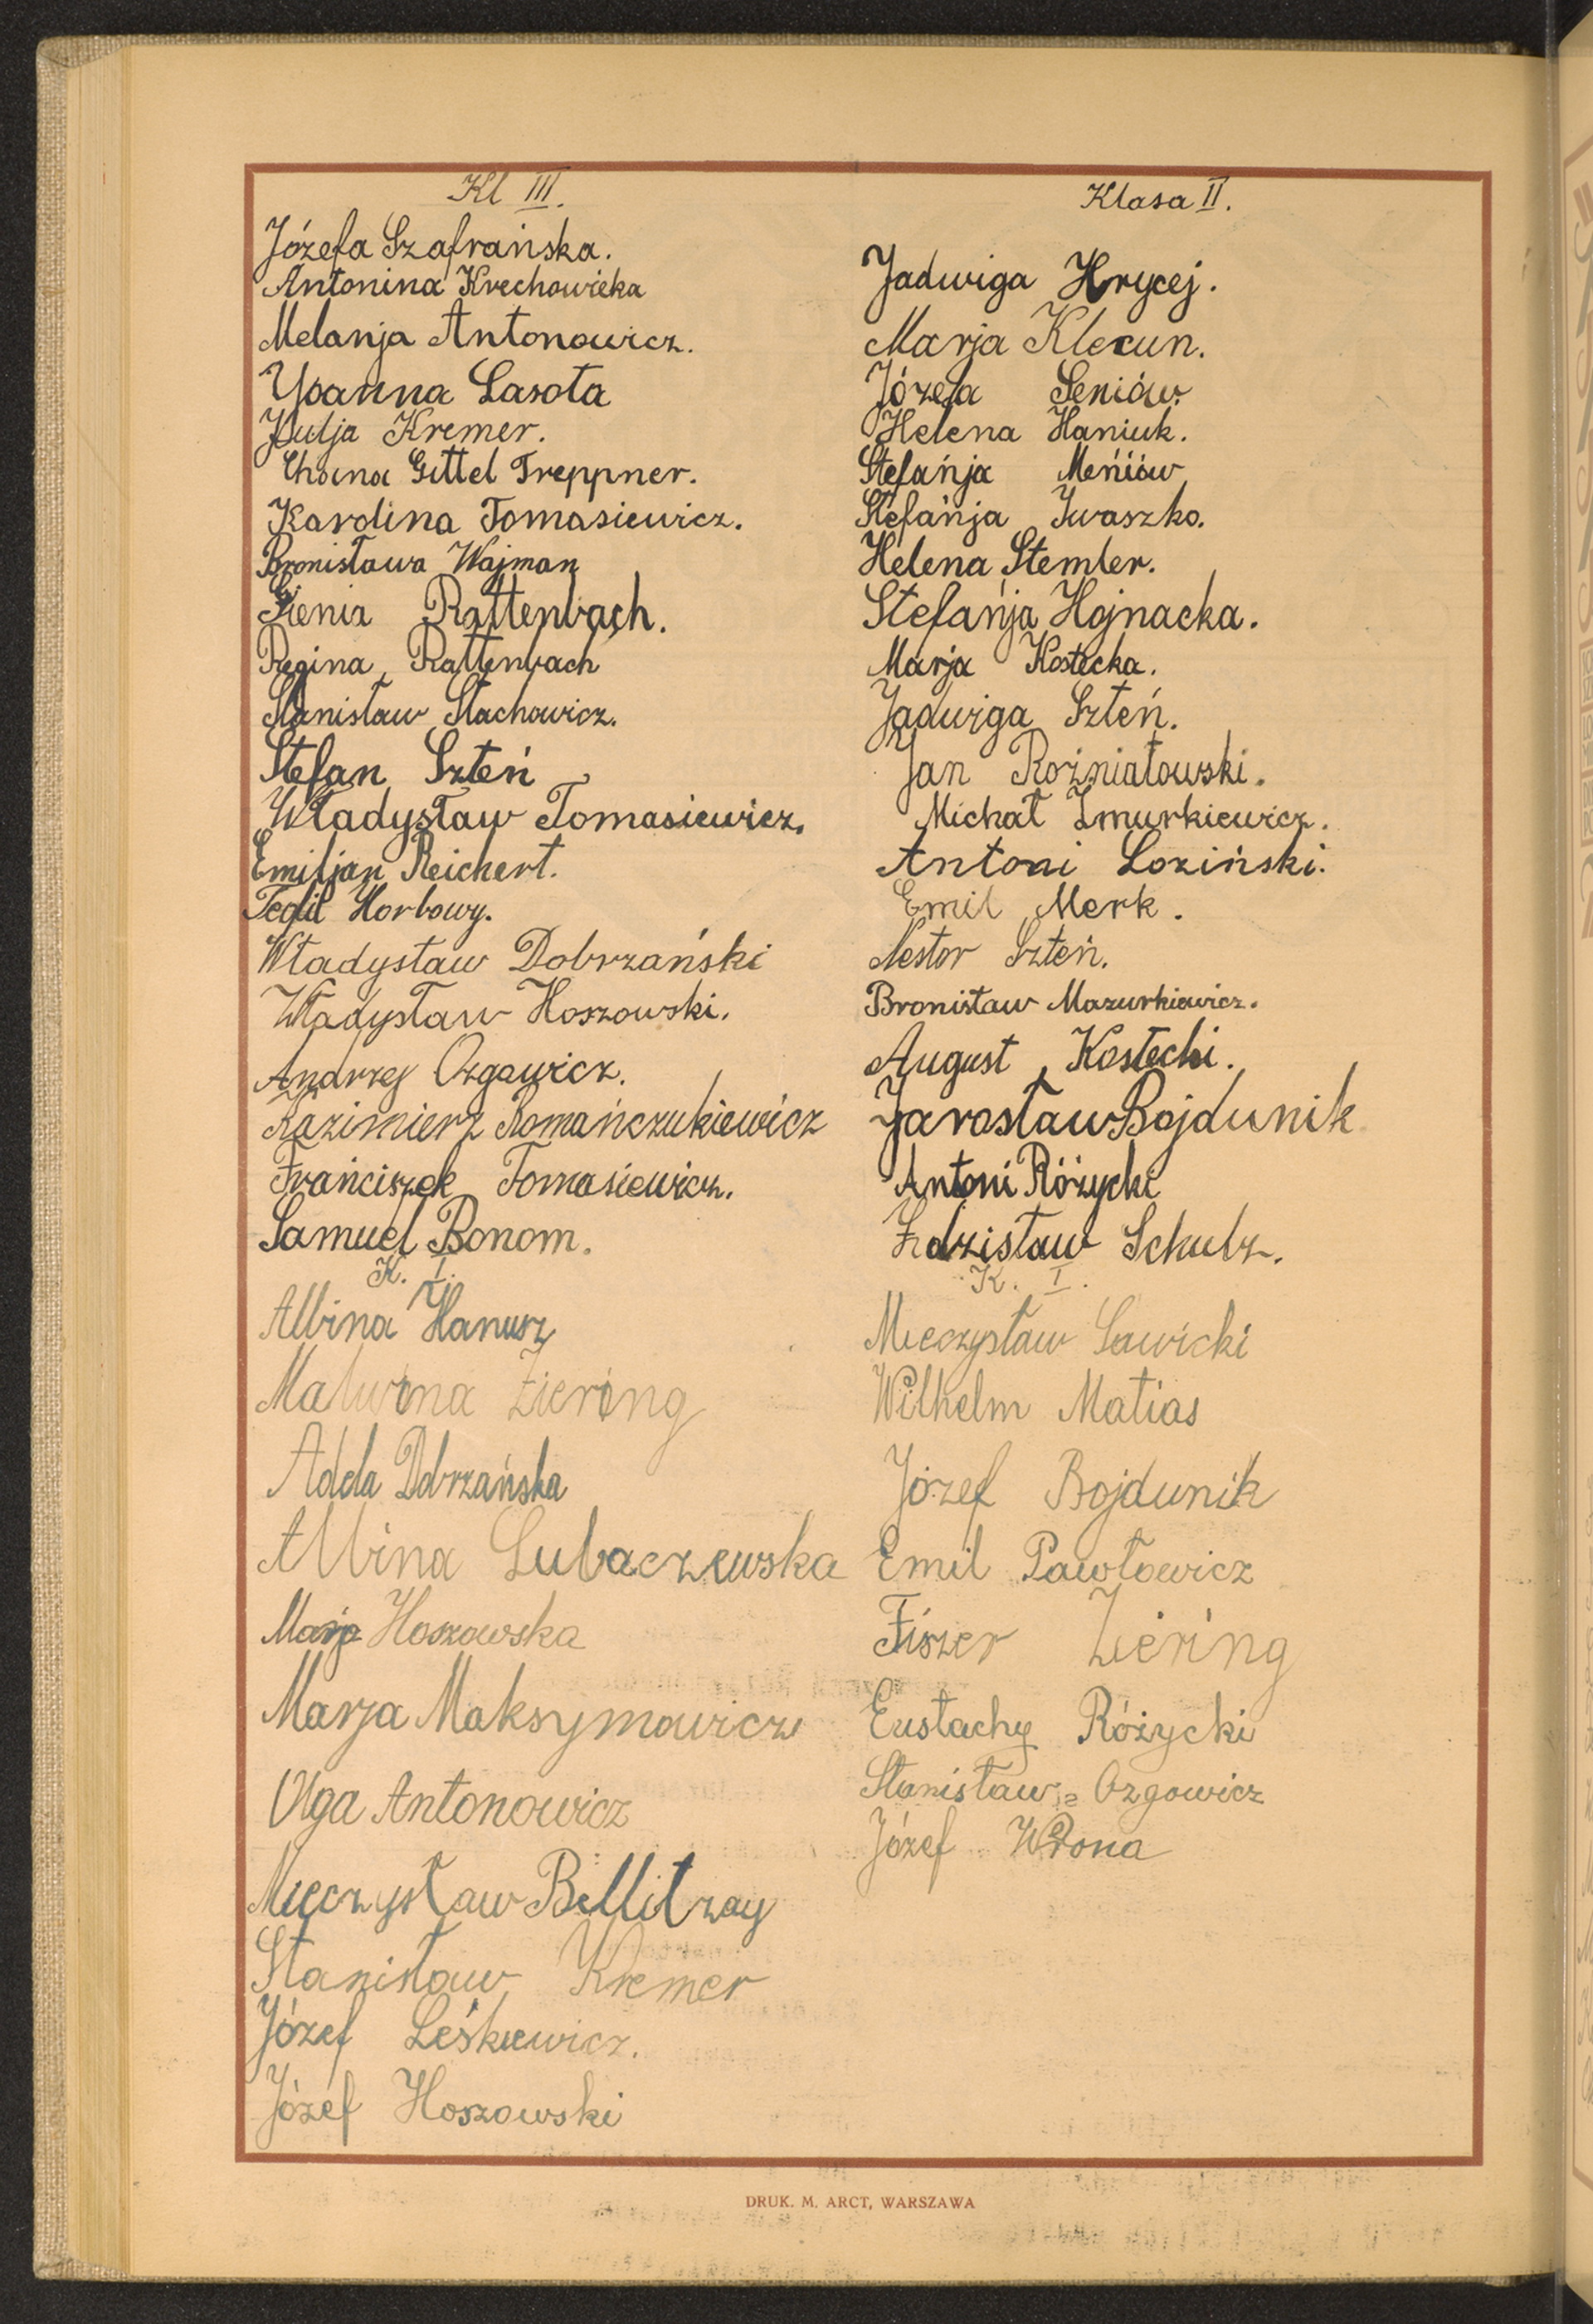 Kl III.
Józefa Szafrańska.
Antonina Krechowicka
Melanja Antonowicz.
Yoanna Lasota
Julja Kremer.
Chana Gittel Treppner.
Karolina Tomasiewicz.
Bronisława Wajman
Gienia Rattenbach.
Regina Rattenbach
Stanisław Stachowicz.
Stefan Szteń
Władysław Tomasiewicz.
Emiljan Reichert.
Teofil Horbowy.
Władysław Dobrzański
Władysław Hoszowski.
Andrzej Ozgowicz.
Kazimierz Romańczukiewicz
Franciszek Tomasiewicz.
Samuel Bonom.
K. I.
Albina Hanusz
Malwina Ziering
Adela Dobrzańska
Albina Lubaczewska
Marja Hoszowska
Marja Maksymowicz
Olga Antonowicz
Mieczysław Bellitzay
Stanisław Kremer
Józef Leśkiewicz.
Józef Hoszowski
Klasa II.
Jadwiga Hrycej.
Marja Klecun.
Józefa Seniów.
Helena Haniuk.
Stefańja Meńiów
Stefańja Iwaszko.
Helena Stemler.
Stefańja Hojnacka.
Marja Kostecka.
Jadwiga Szteń.
Jan Rożniatowski.
Michał Żmurkiewicz.
Antoni Łoziński.
Emil Merk.
Nestor Szteń.
Bronisław Mazurkiewicz.
August Kostecki.
Jarosław Bojdunik
Antoni Różycki
Zdzisław Schulz.
K. I.
Mieczysław Sawicki
Wilhelm Matias
Józef Bojdunik
Emil Pawłowicz
Fiszer Ziering
Eustachy Różycki
Stanisław Ozgowicz
Józef Wrona
DRUK. M. ARCT, WARSZAWA